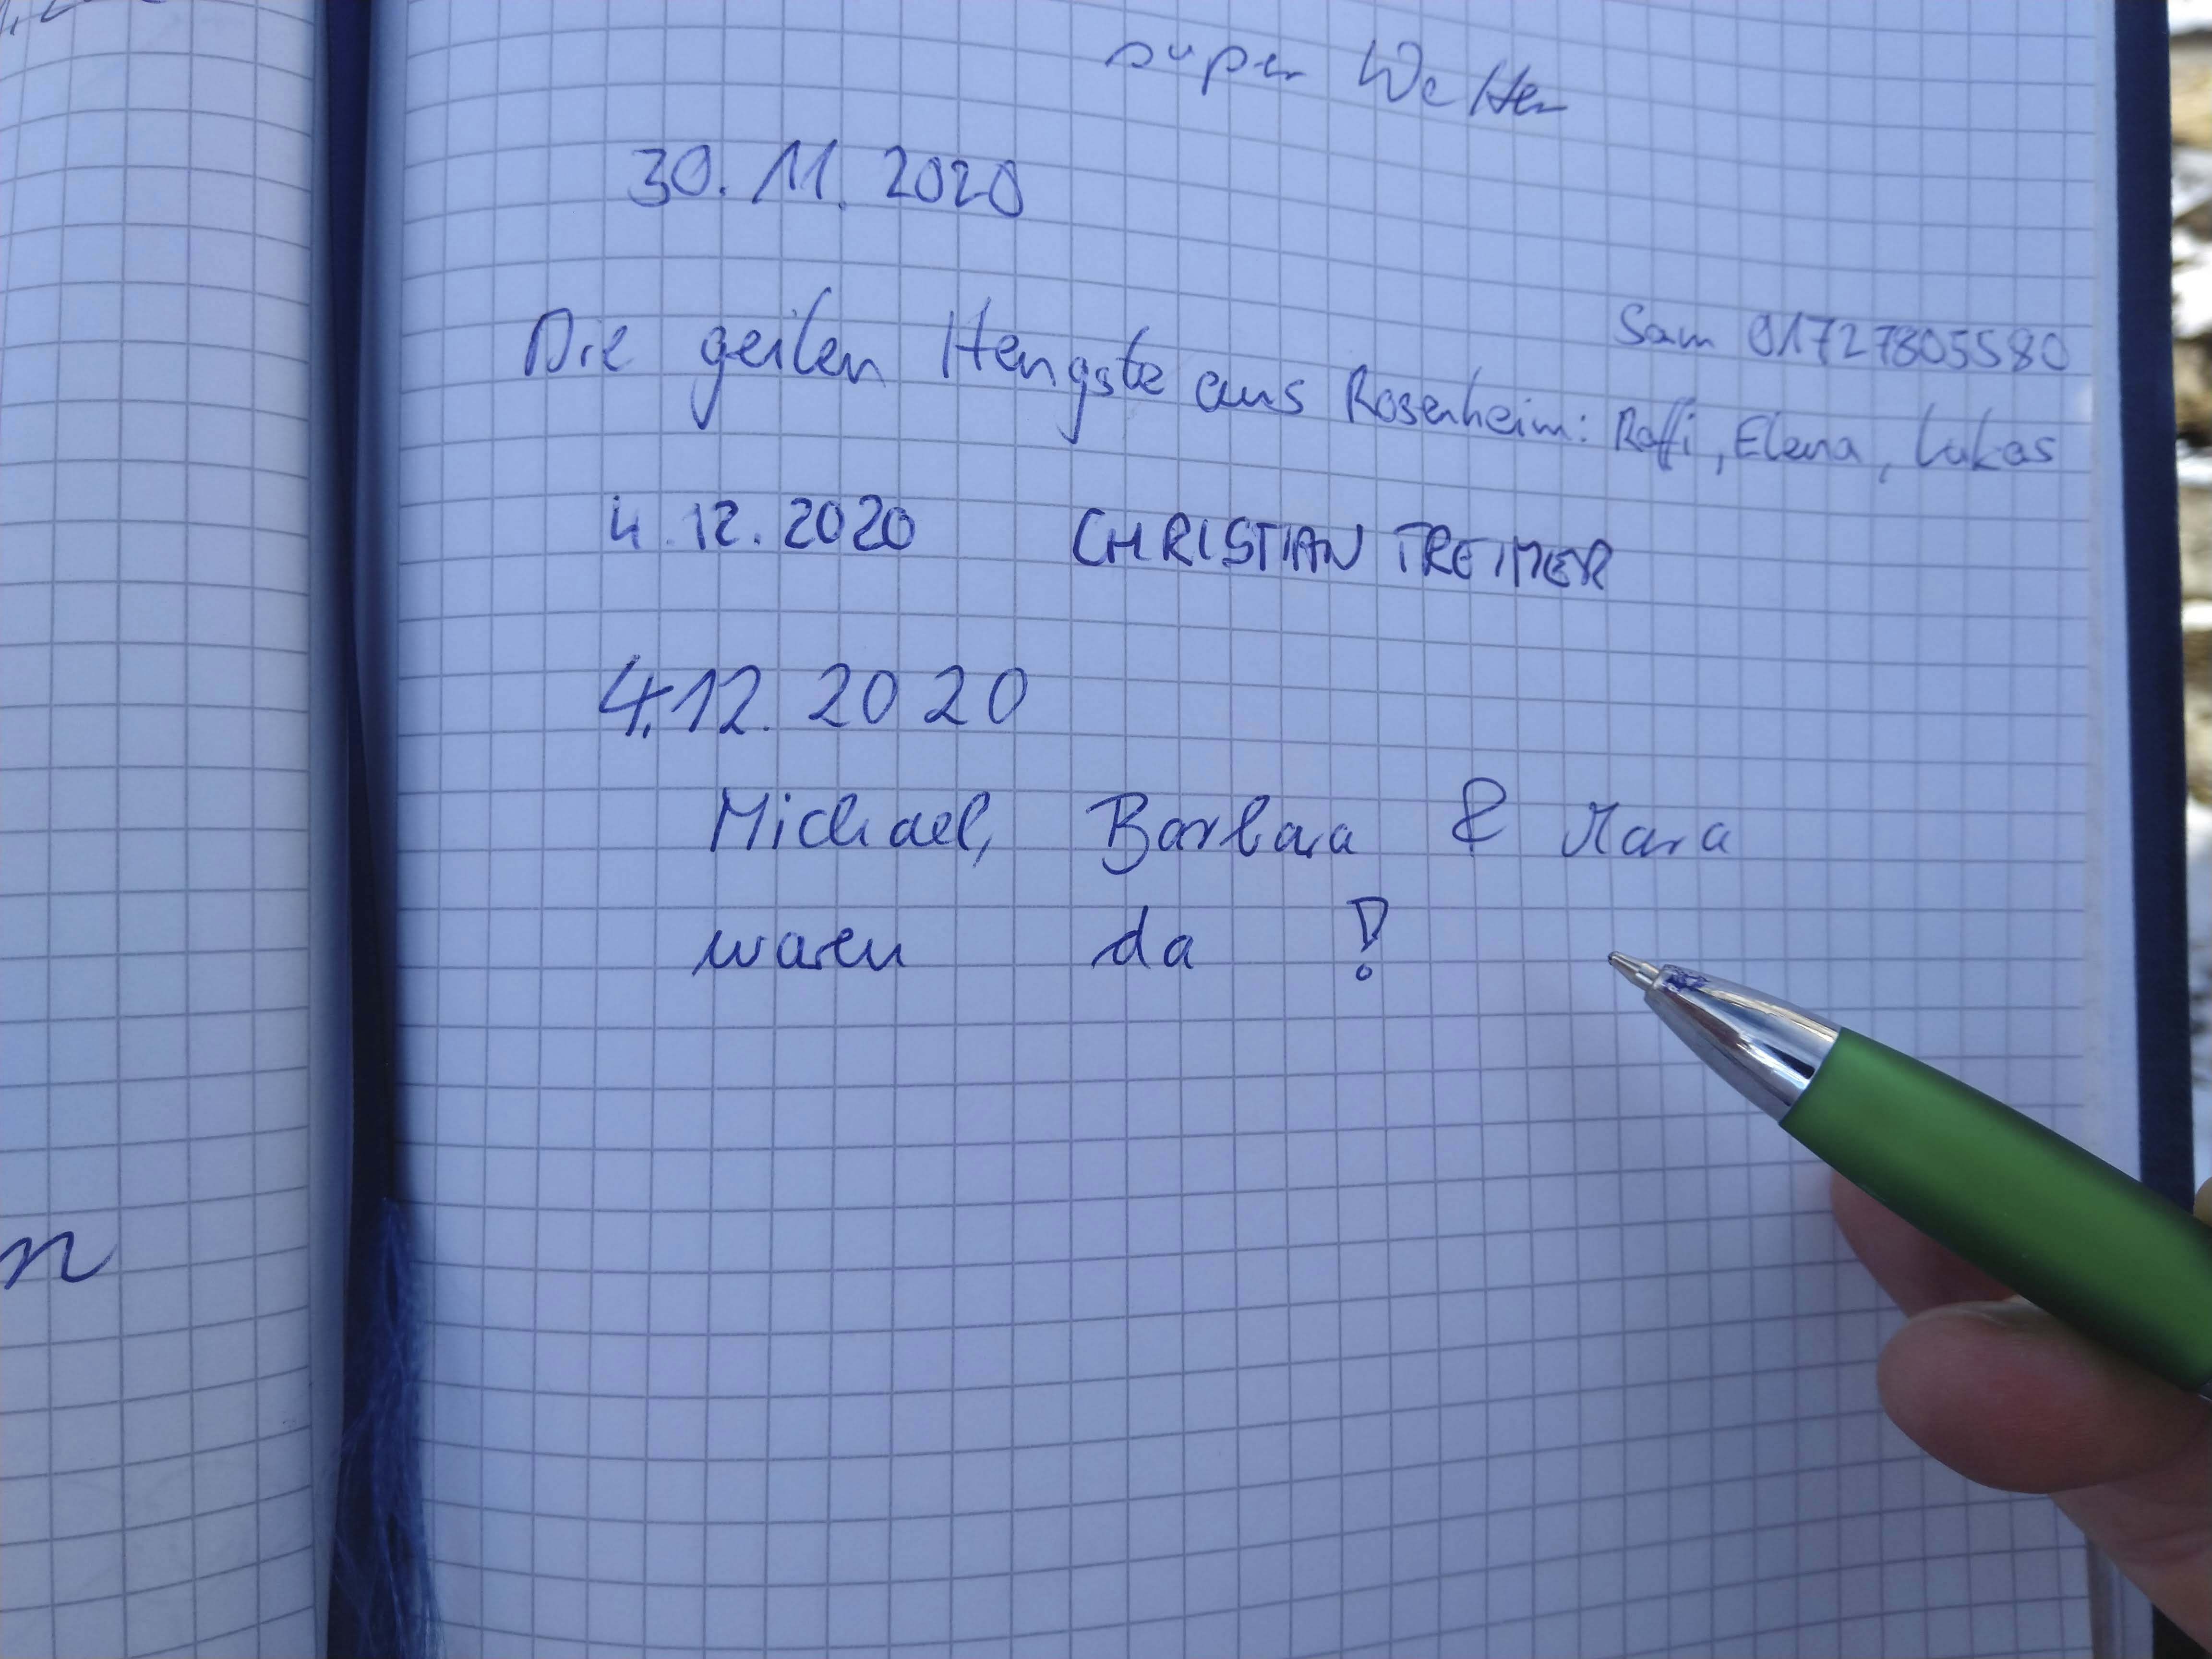 super Wetter
30. 11. 2020
Sam 01727805580
Die geilen Hengste aus Rosenheim: Raffi, Elena, Lukas
4. 12. 2020 CHRISTIAN TREIMER
4.12. 2020
Michael, Barbara & Mara
waren da !
n